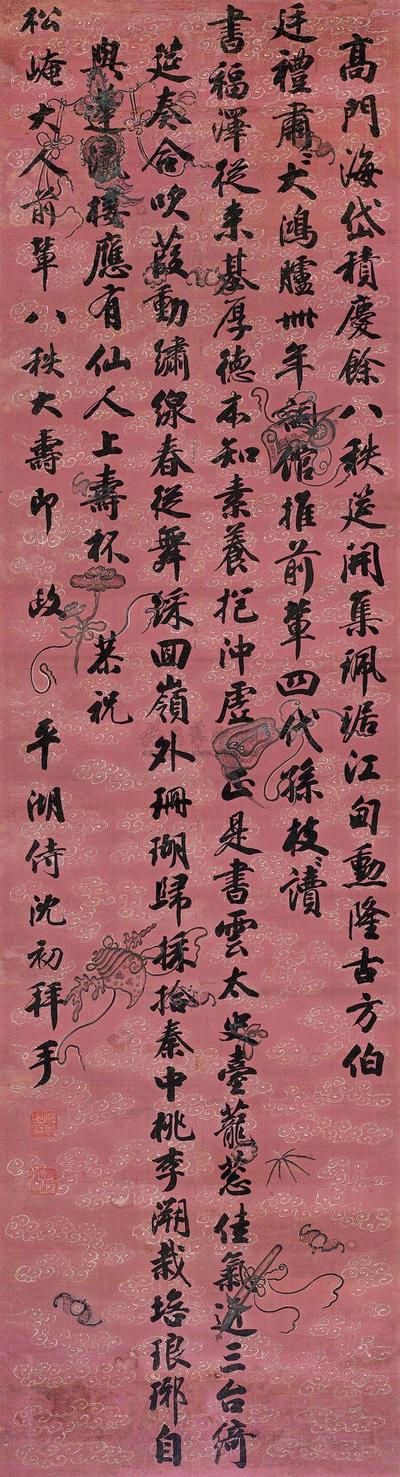 高門海岱積慶餘八秩筵開集珮琚江甸勳隆古方伯
廷禮肅大鴻臚卌年詞館推前輩四代孫枝讀
書福澤從來基厚德本知素養抱沖虛正是書雲太史臺蘢蔥佳氣近三台綺
筵奏合吹葭動繡線春從舞綵回嶺外珊瑚歸採拾秦中桃李溯栽培琅琊自
與蓬瀛接應有仙人上壽杯 恭祝
松崦大人前輩八秩大壽即 政 平湖侍沈初拜手